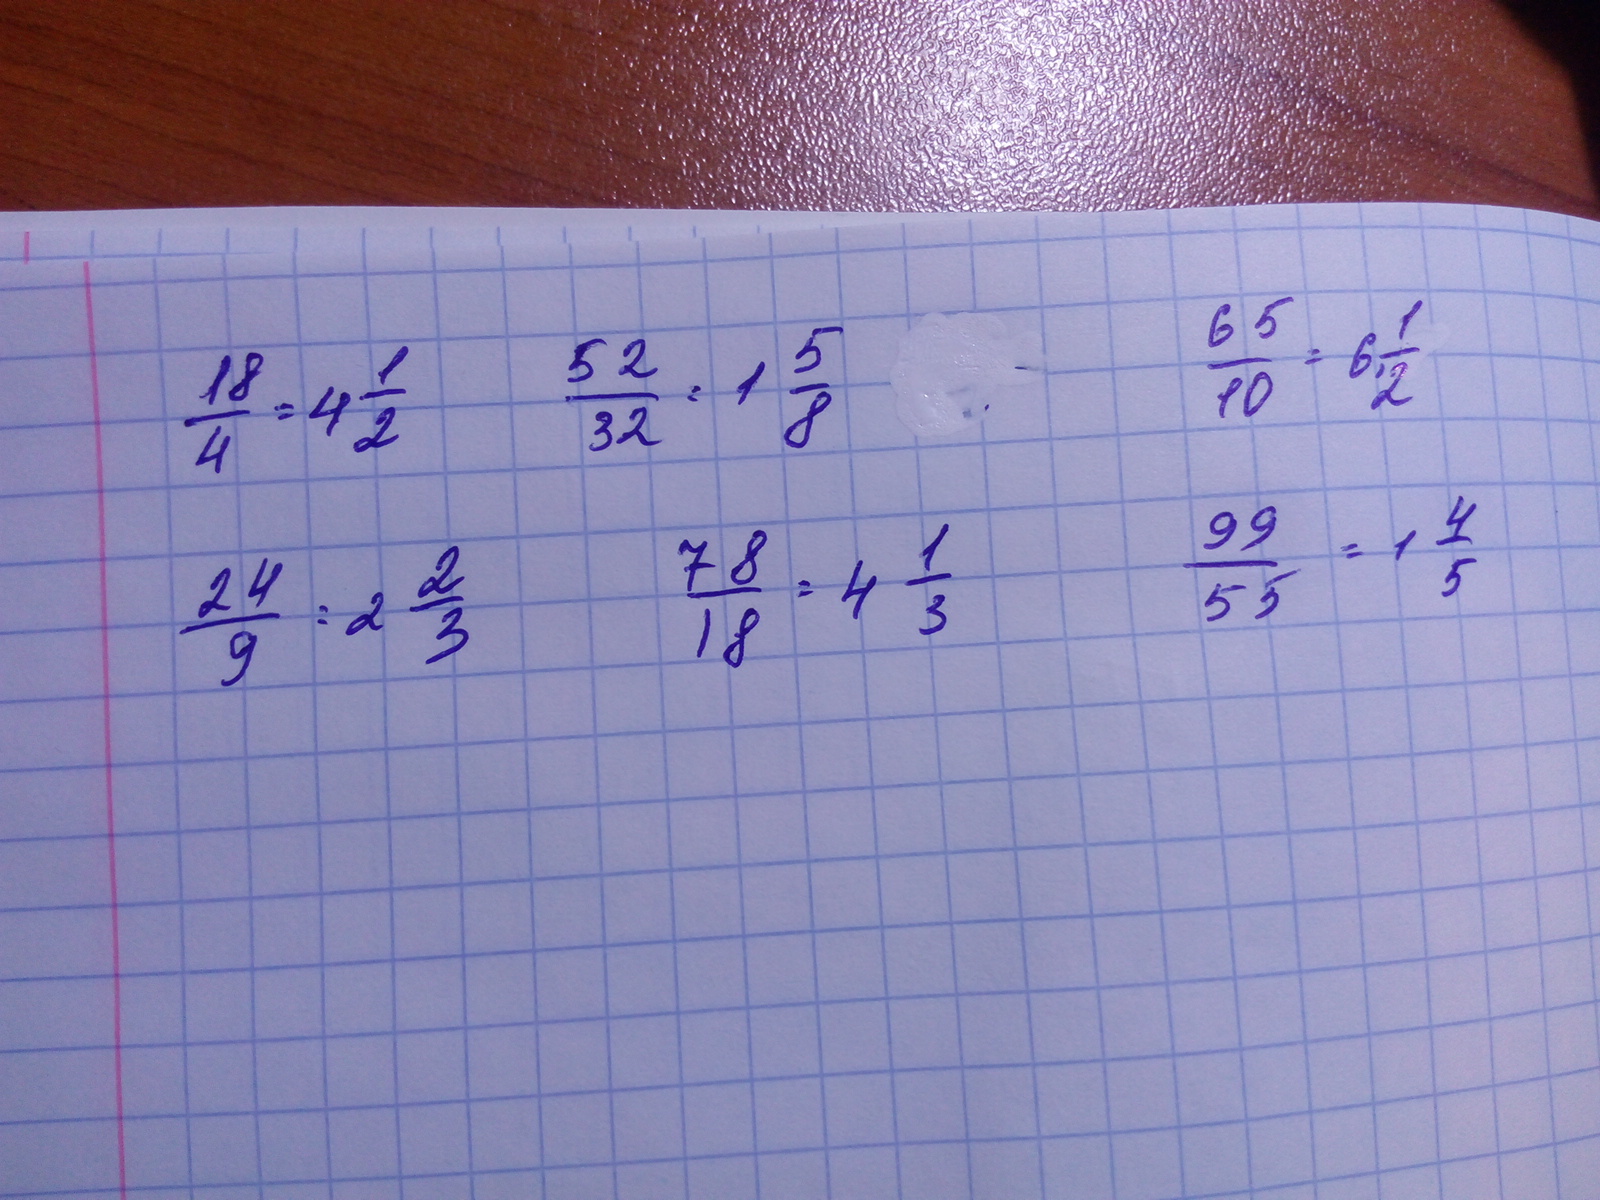 18/4 = 4 1/2   52/32 = 1 5/8   65/10 = 6 1/2
24/9 = 2 2/3   78/18 = 4 1/3   99/55 = 1 4/5